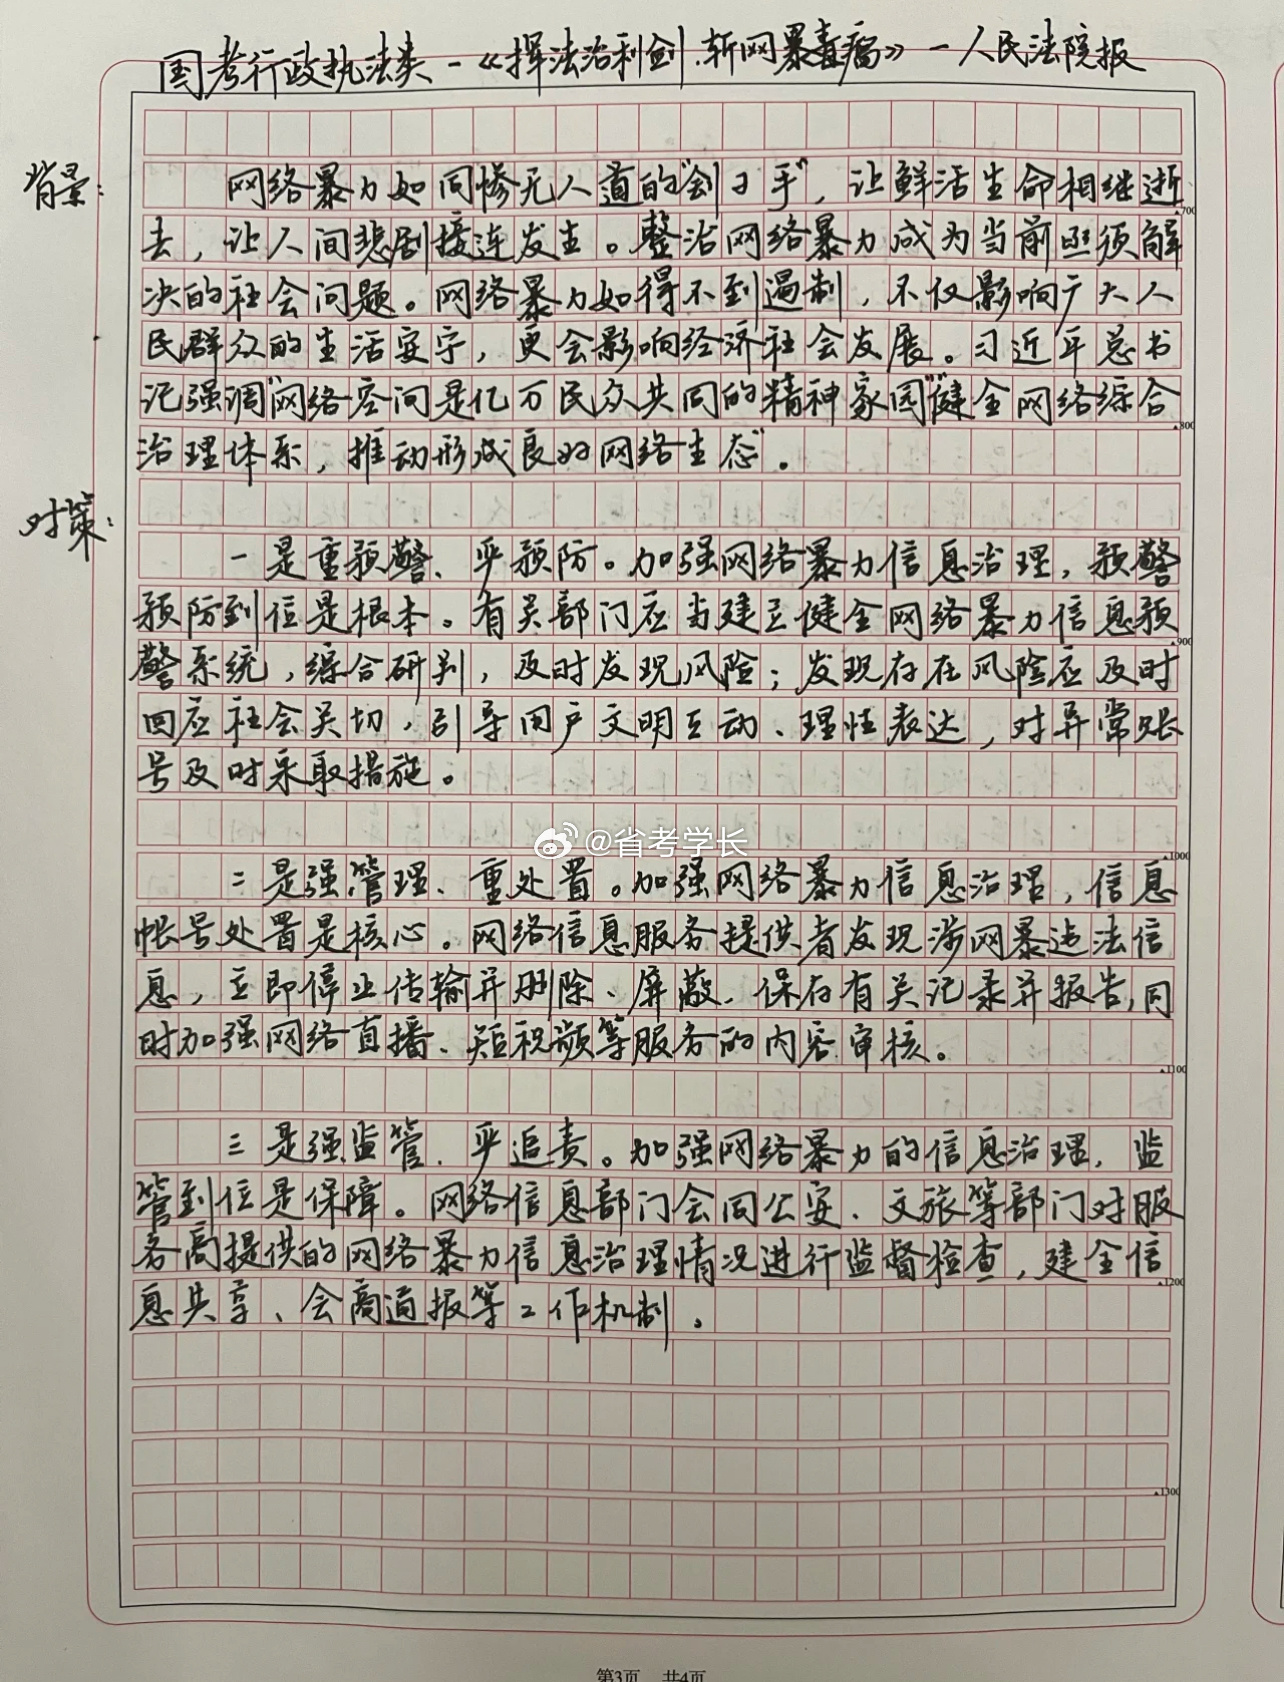 国考行政执法类-《挥法治利剑.斩网暴毒瘤》-人民法院报
背景:
网络暴力如同惨无人道的"刽子手",让鲜活生命相继逝
700
去,让人间悲剧接连发生。整治网络暴力成为当前亟须解
决的社会问题。网络暴力如得不到遏制,不仅影响广大人
民群众的生活安宁,更会影响经济社会发展。习近平总书
记强调"网络空间是亿万民众共同的精神家园""健全网络综合
800
治理体系,推动形成良好网络生态"。
对策:
一是重预警、严预防。加强网络暴力信息治理,预警
预防到位是根本。有关部门应当建立健全网络暴力信息预
900
警系统,综合研判,及时发现风险;发现存在风险应及时
回应社会关切,引导用户文明互动、理性表达,对异常账
号及时采取措施。
@省考学长
1000
二是强管理、重处置。加强网络暴力信息治理,信息
帐号处置是核心。网络信息服务提供者发现涉网暴违法信
息,立即停止传输并删除、屏蔽、保存有关记录并报告,同
时加强网络直播、短视频等服务的内容审核。
1100
三是强监管、严追责。加强网络暴力的信息治理,监
管到位是保障。网络信息部门会同公安、文旅等部门对服
务商提供的网络暴力信息治理情况进行监督检查,建全信
1200
息共享、会商通报等工作机制。
1300
第3页 共4页